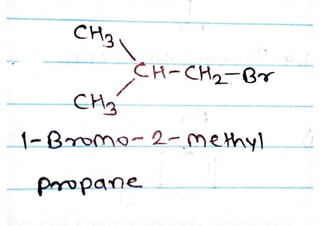 CH3
CH-CH2-Br
CH3
1-Bromo-2-methyl
propane